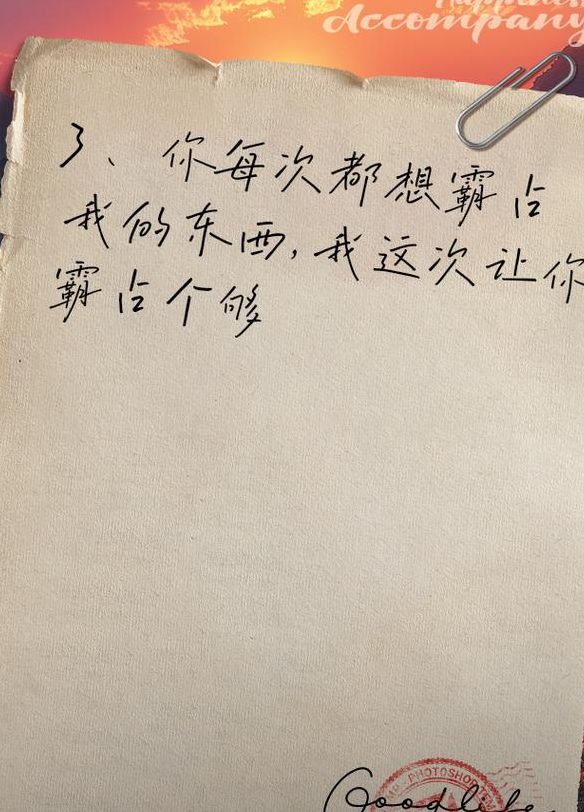 Accompany
3、你每次都想霸占
我的东西,我这次让你
霸占个够
PHOTOSHOP